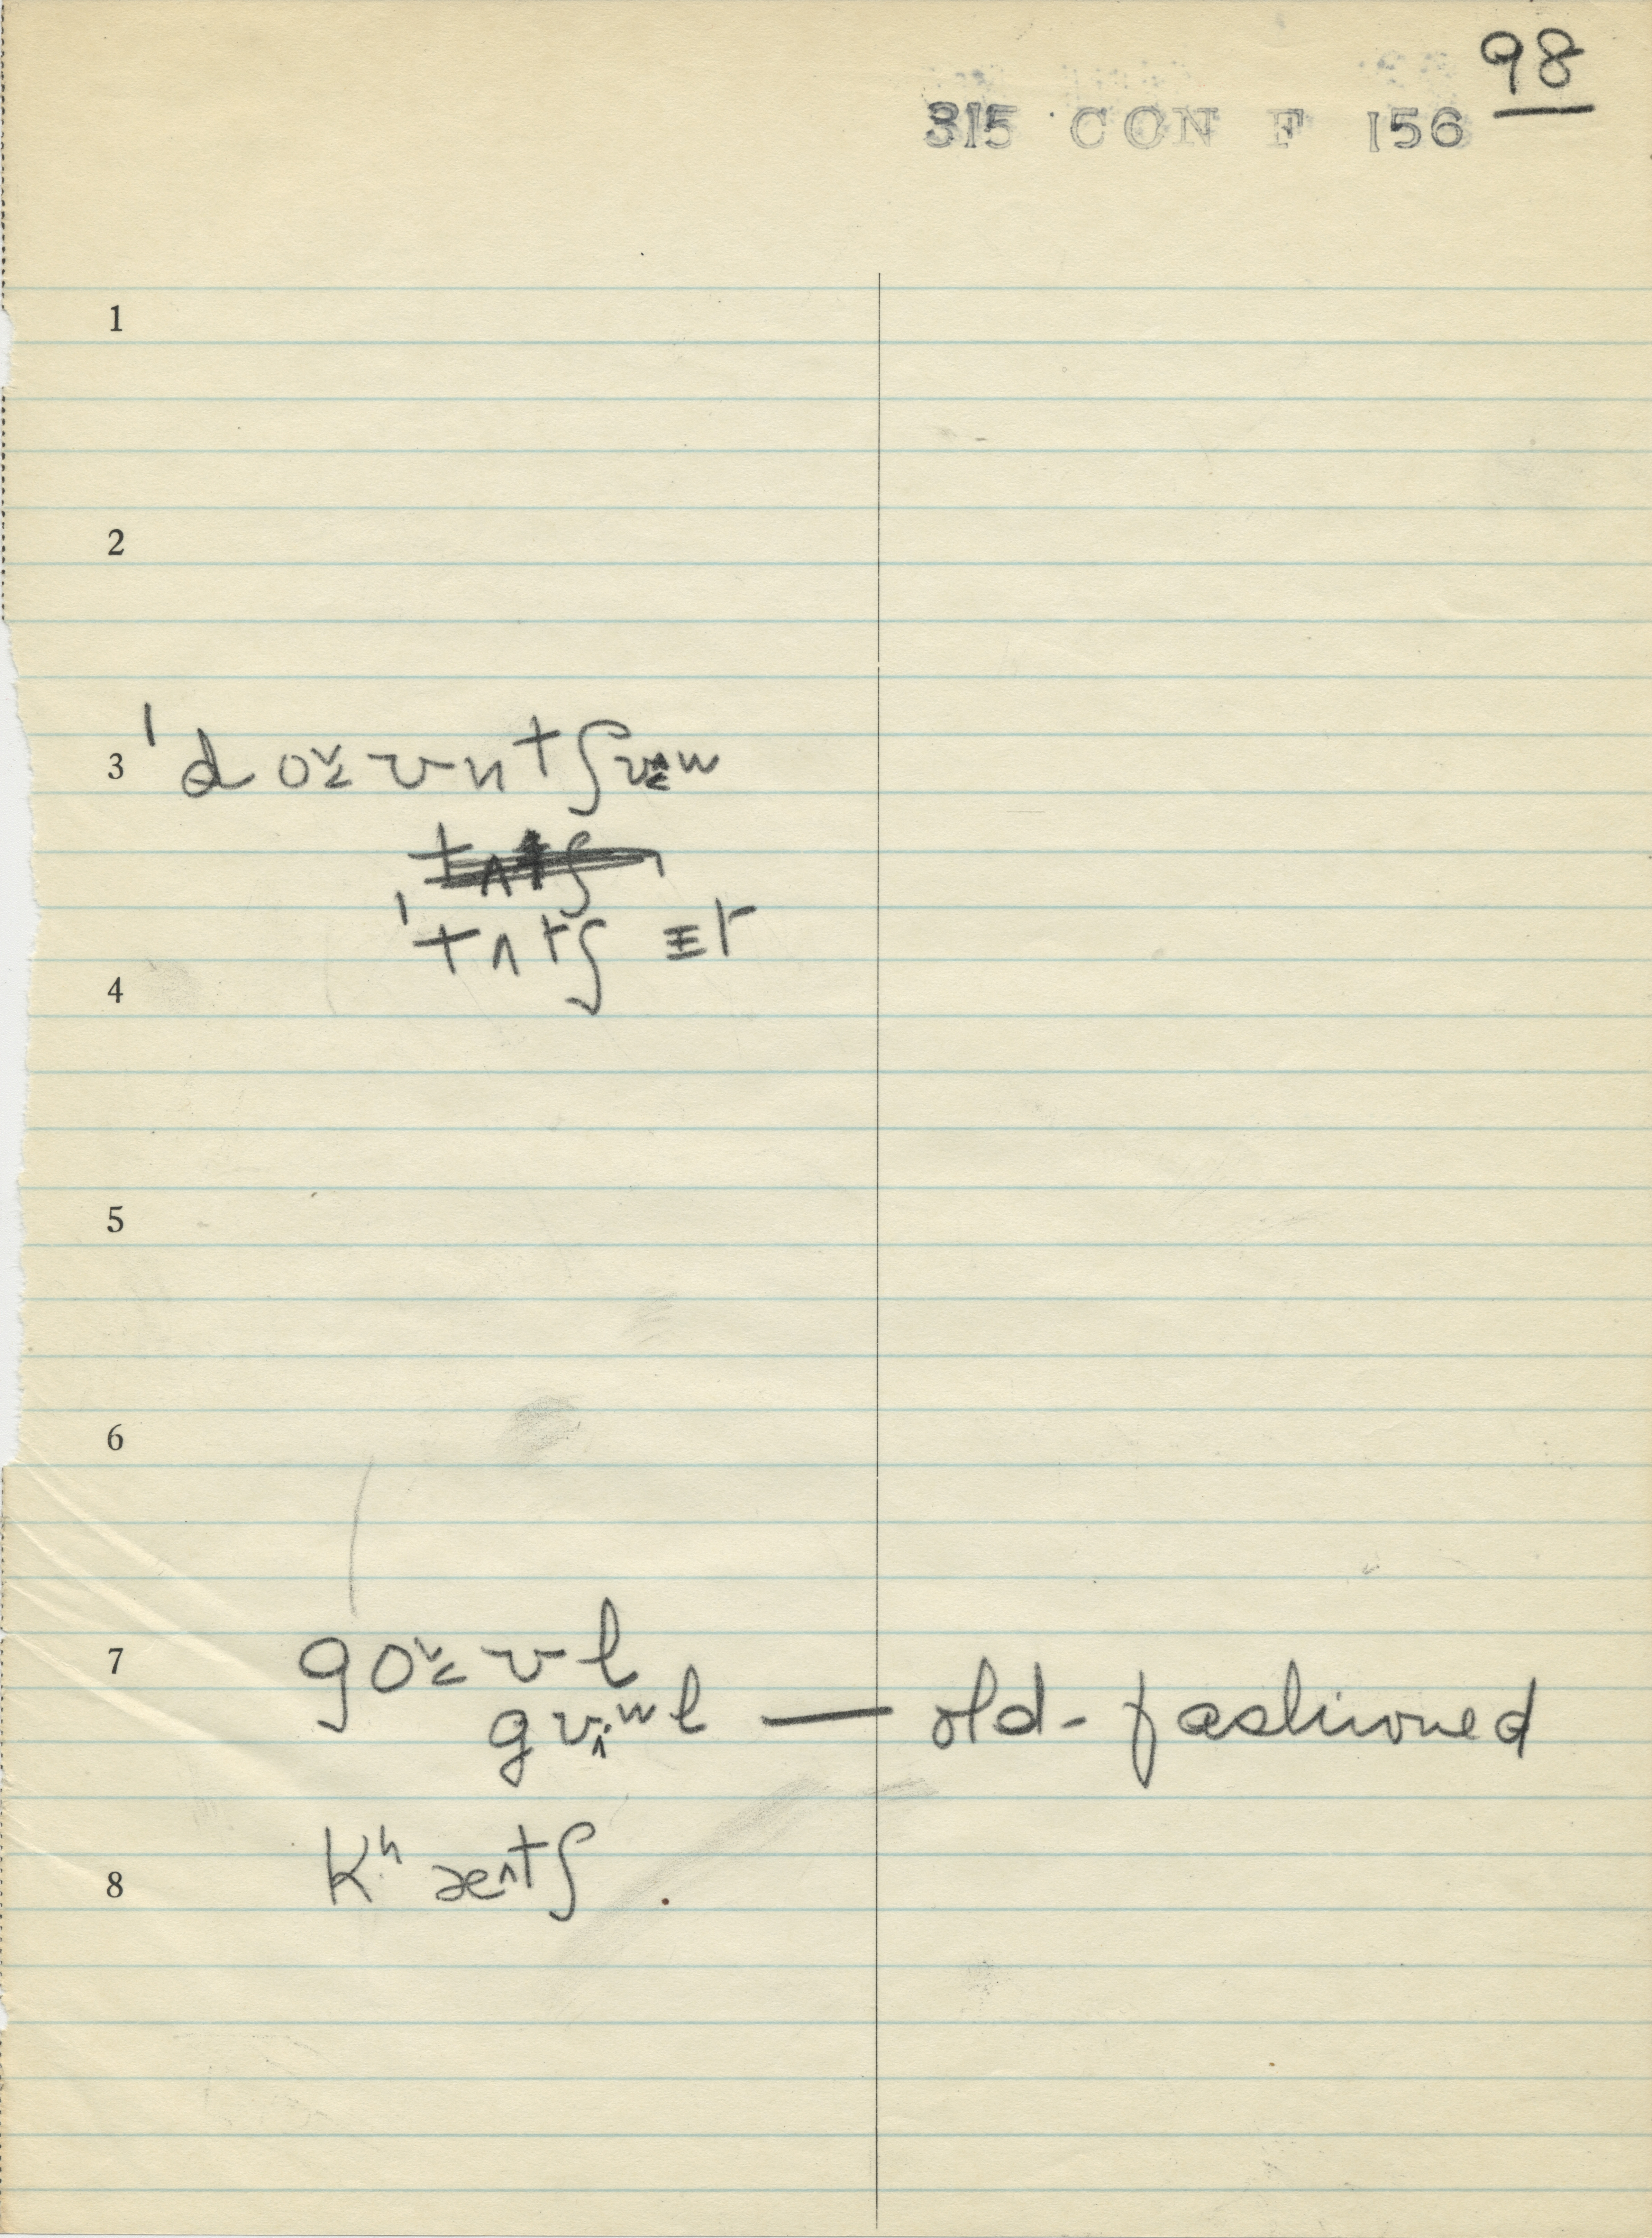 98
315 CON F 156
1
2
3 ˈd o˅≤ ʊ n t ʃ ʊ w
ˈt ʌ t ʃ ɪt
4
5
6
7 g o˅≤ ʊ l
g ʊ^ w l — old-fashioned
8 kʰ æ^ t ʃ